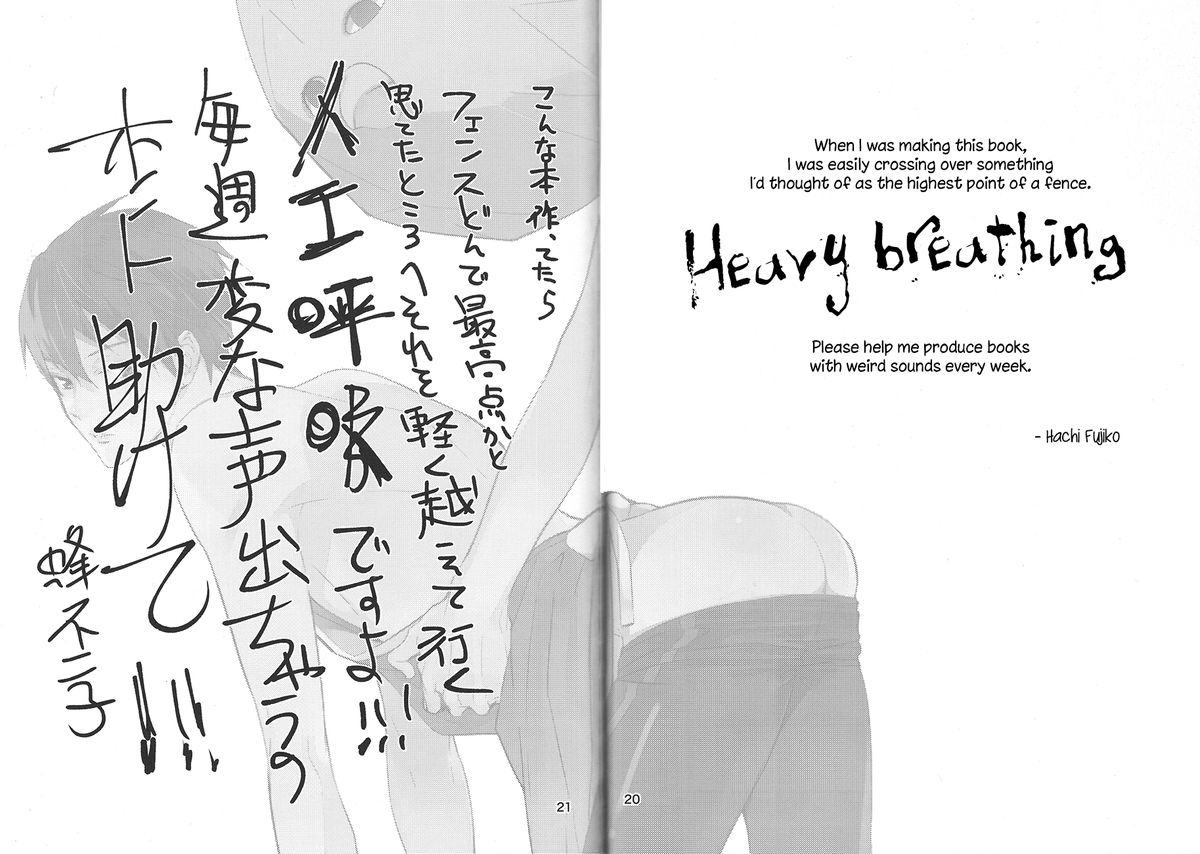 When I was making this book,
I was easily crossing over something
I'd thought of as the highest point of a fence.
Heavy breathing
Please help me produce books
with weird sounds every week.
- Hachi Fujiko
20
こんな本作ってたら
フェンスどんで最高点かと
思てたところへそれを軽く越えて行く
人工呼吸ですよ!!!
毎週変な声出ちゃうの
ホント助けて!!!
蜂不二子
21